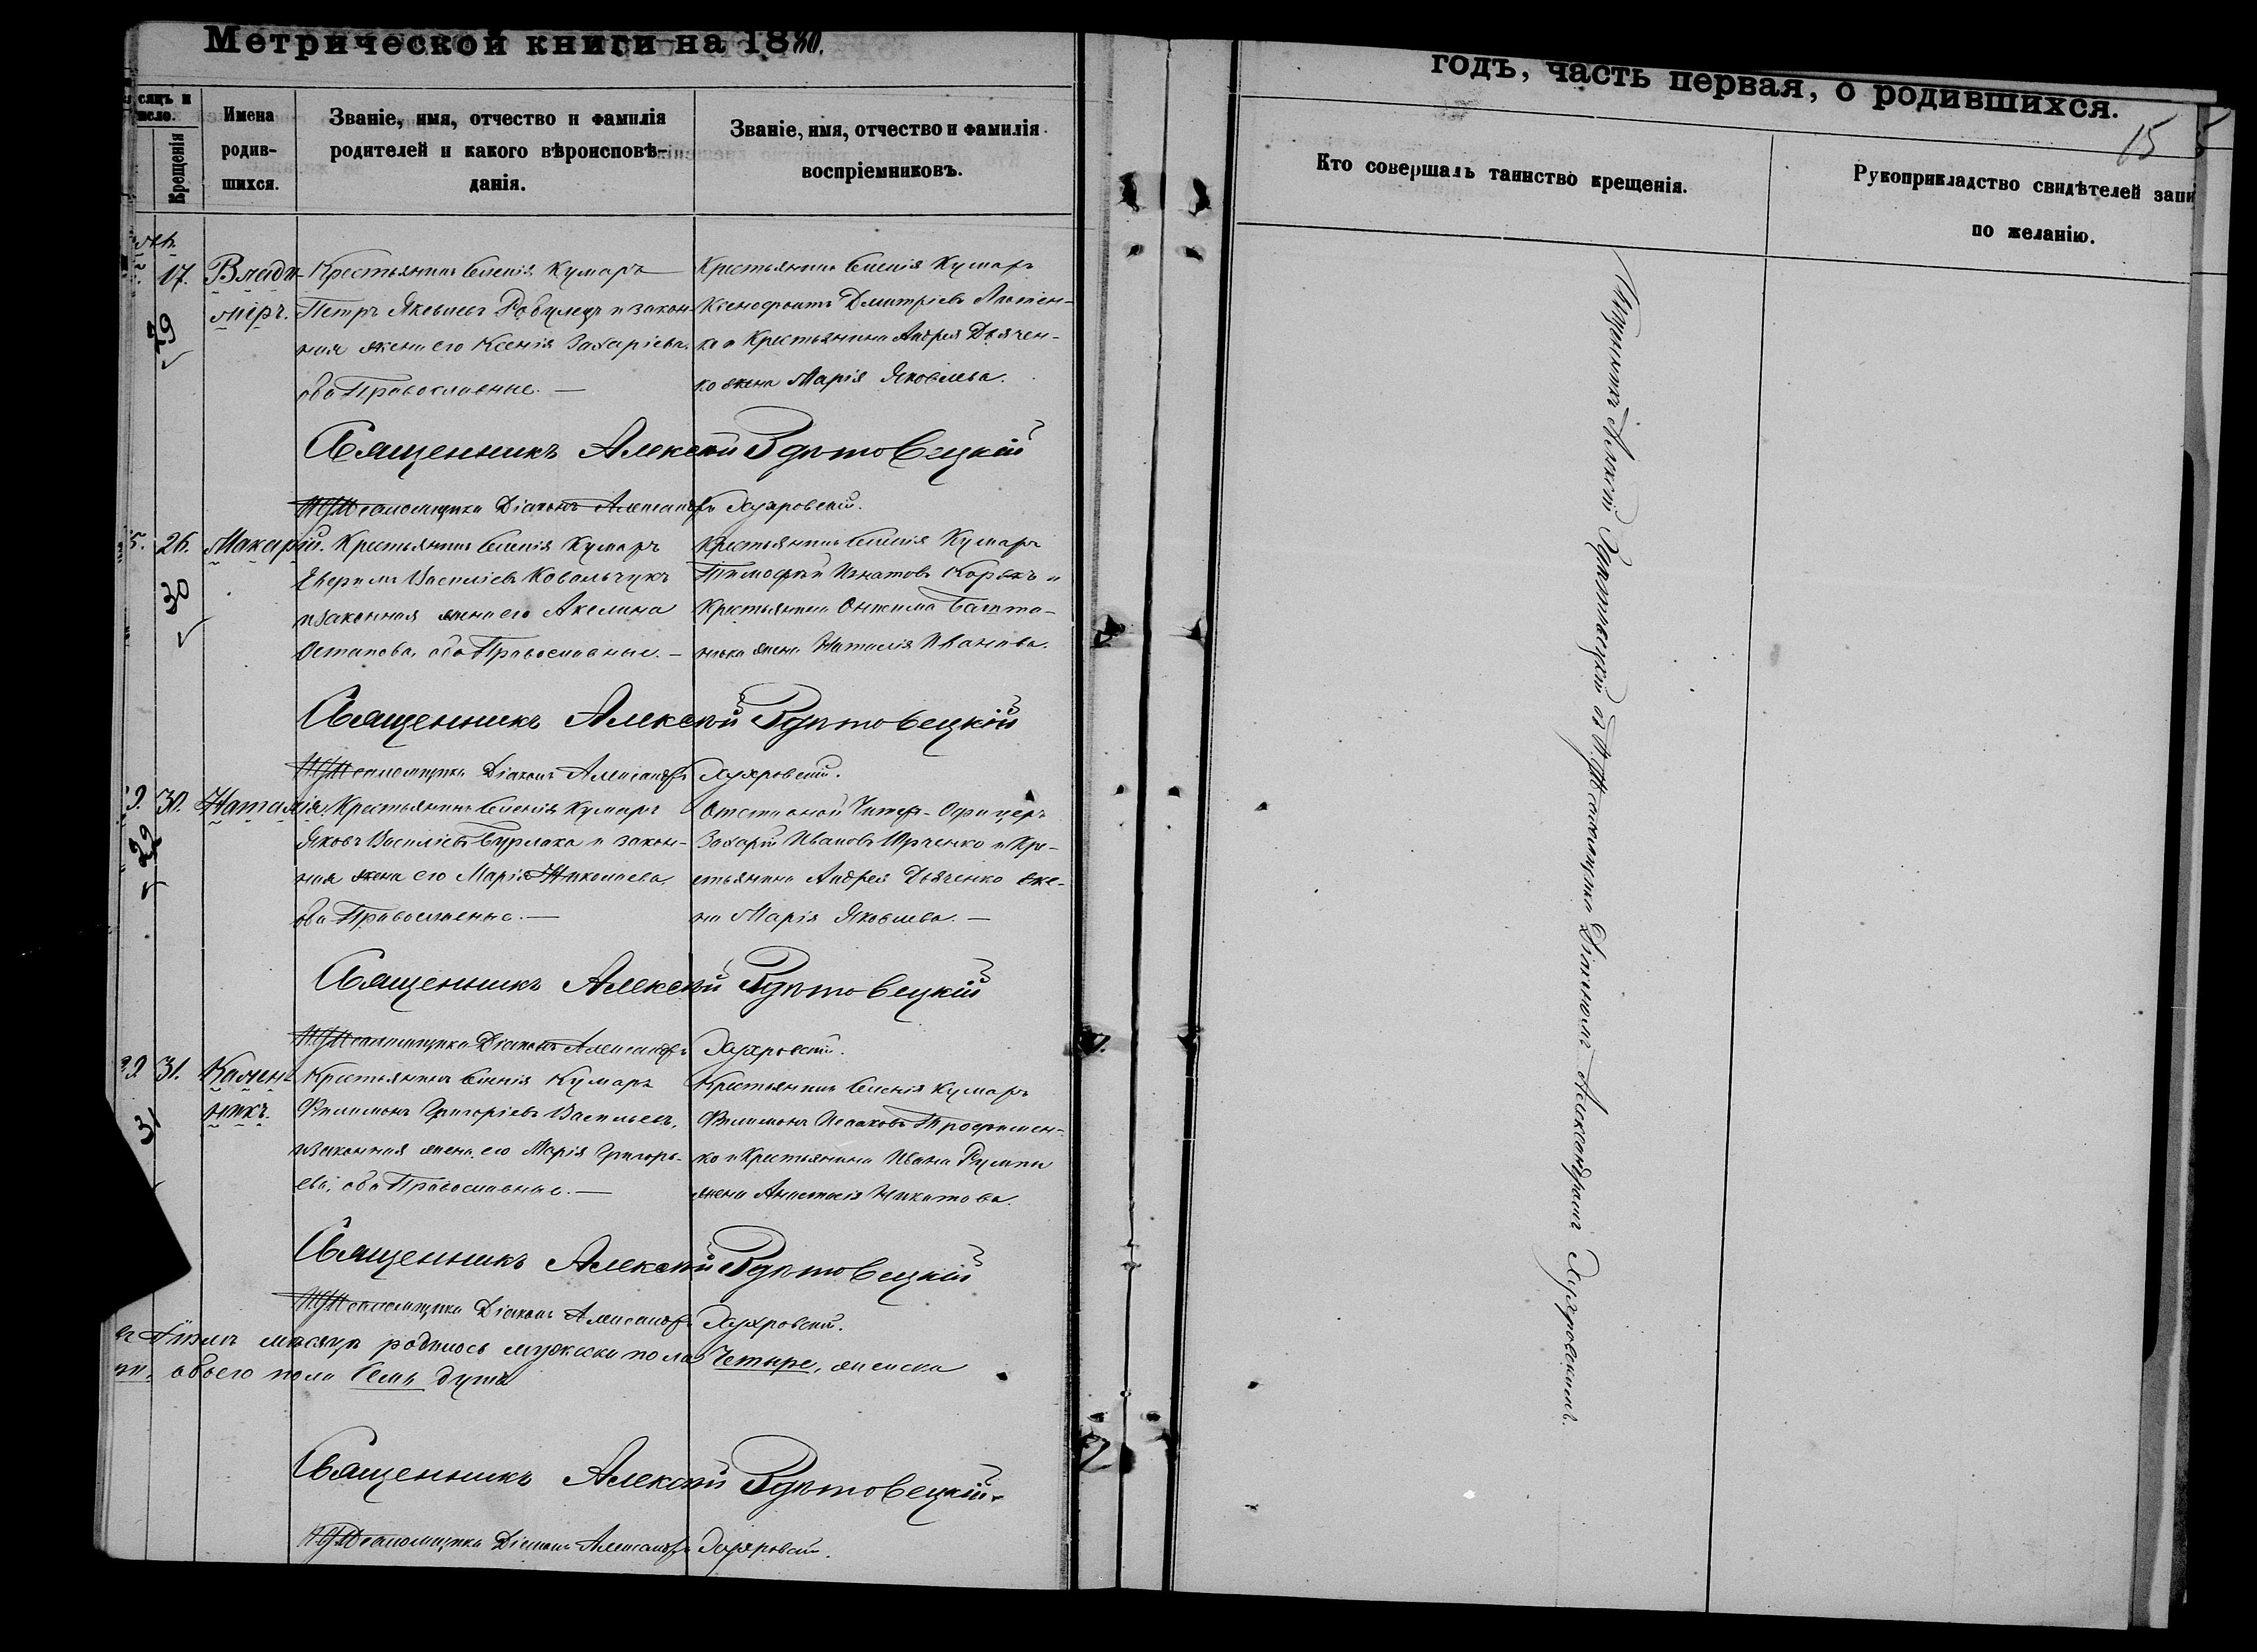 Метрической книги на 1880.
годъ, часть первая, о родившихся.
15
сяцъ и
число.
Крещенія
Имена
родив-
шихся.
Званіе, имя, отчество и фамилія
родителей и какого вѣроисповѣ-
данія.
Званіе, имя, отчество и фамилія
воспріемниковъ.
Кто совершалъ таинство крещенія.
Рукоприкладство свидѣтелей запи
по желанію.
17.
29
Влади-
міръ.
Крестьянинъ Селенія Кумаръ
Петръ Яковлевъ и закон-
ная жена его Ксенія Захаріева.
оба Православные. —
Крестьянинъ Селенія Кумаръ
Ксенофонтъ Дмитріевъ
ка и Крестьянина Андрея Дьячен-
ко жена Марія Яковлева.
Священникъ Алексѣй Здѣтовецкій
И. д. Псаломщика Діаконъ Александръ
5. 26.
30
Макарій.
Крестьянинъ Селенія Кумаръ
Василіевъ Ковальчукъ
и законная жена его Акилина
Остапова, оба Православные. —
Крестьянинъ Селенія Кумаръ
Тимофей Игнатовъ и
Крестьянина
жена Наталія Иванова.
Священникъ Алексѣй Здѣтовецкій
И. д. Псаломщика Діаконъ Александръ
9. 30.
29
Наталія.
Крестьянинъ Селенія Кумаръ
Яковъ Василіевъ Бурлака и закон-
ная жена его Марія Николаева,
оба Православные. —
Отставной Унтеръ-Офицеръ
Захарій Ивановъ Юрченко и Кре-
стьянина Андрея Дьяченко же-
на Марія Яковлева. —
Священникъ Алексѣй Здѣтовецкій
И. д. Псаломщика Діаконъ Александръ
29 31.
31
Калин-
никъ.
Крестьянинъ Селенія Кумаръ
Филимонъ Григоріевъ Васильевъ,
и законная жена его Марія Григорь-
ева, оба Православные. —
Крестьянинъ Селенія Кумаръ
Филимонъ Исааковъ Трофимен-
ко и Крестьянина Ивана
жена Анастасія Никитова.
Священникъ Алексѣй Здѣтовецкій
И. д. Псаломщика Діаконъ Александръ
Іюлѣ мѣсяцѣ родилось мужска пола Четыре, женска
обоего пола Семь душъ
Священникъ Алексѣй Здѣтовецкій.
И. д. Псаломщика Діаконъ Александръ
Священникъ Алексѣй Здѣтовецкій съ И. д. псаломщика Діакономъ Александромъ